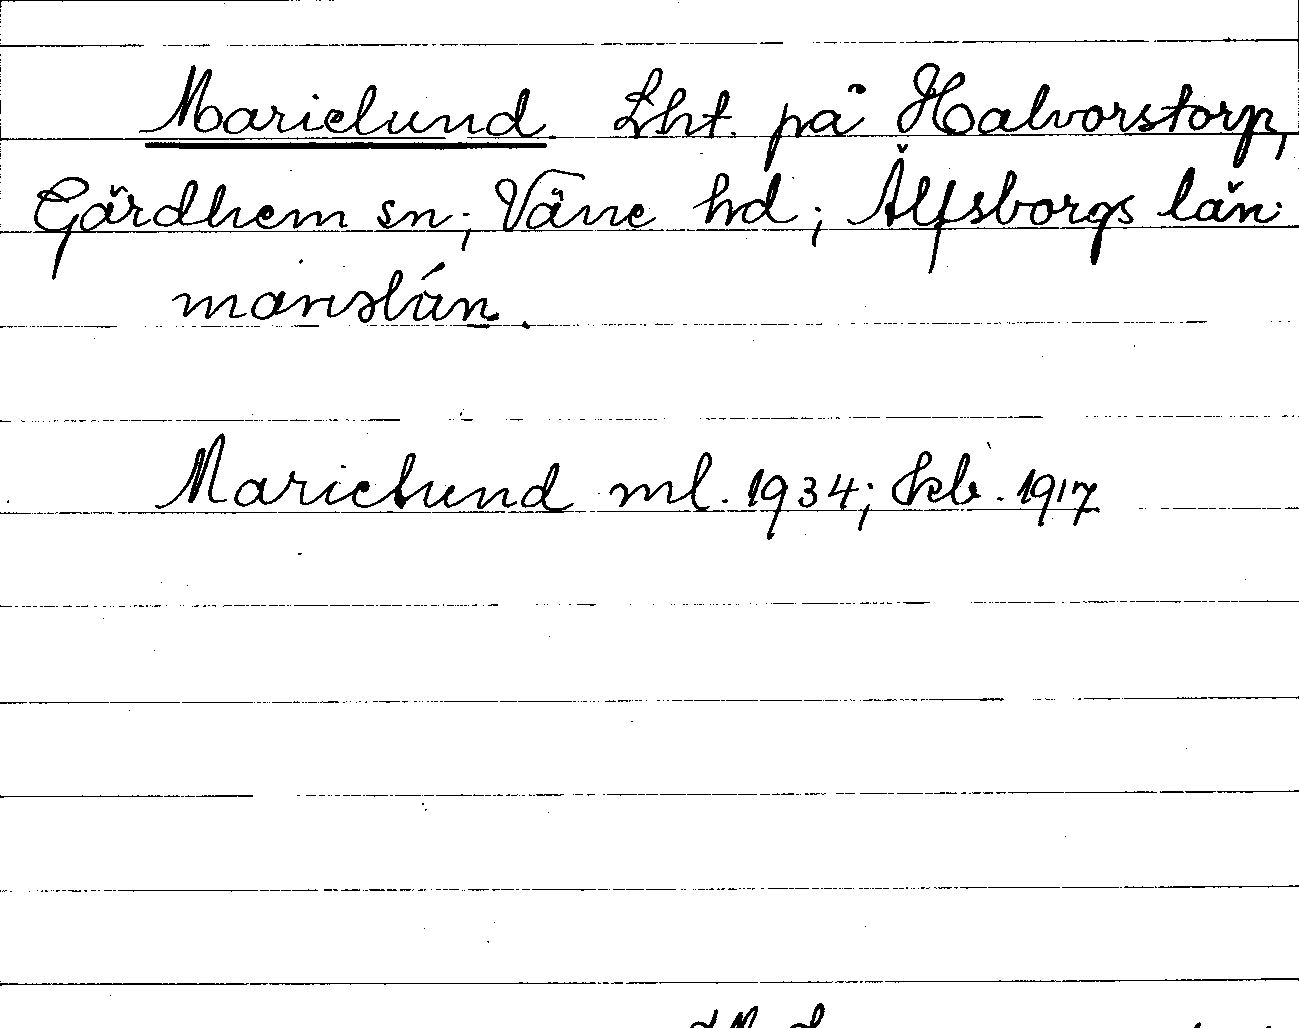 Marielund. Lht. på Halvorstorp,
Gärdhem sn; Väne hd; Älfsborgs län.
marislún.
Marielund ml. 1934; kb. 1917